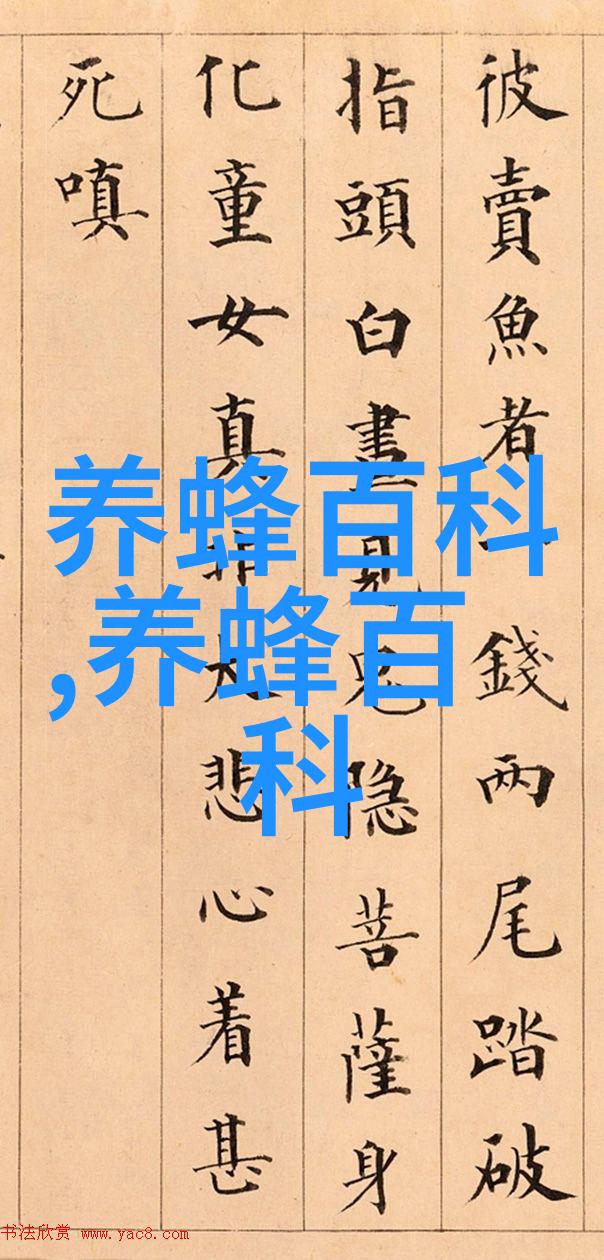 彼賣魚者一錢兩尾踏破
指頭白晝見鬼隐菩薩身
化童女真非大悲心着甚
死嗔
养蜂百科
,养蜂百
科
书法欣赏 www.yac8.com